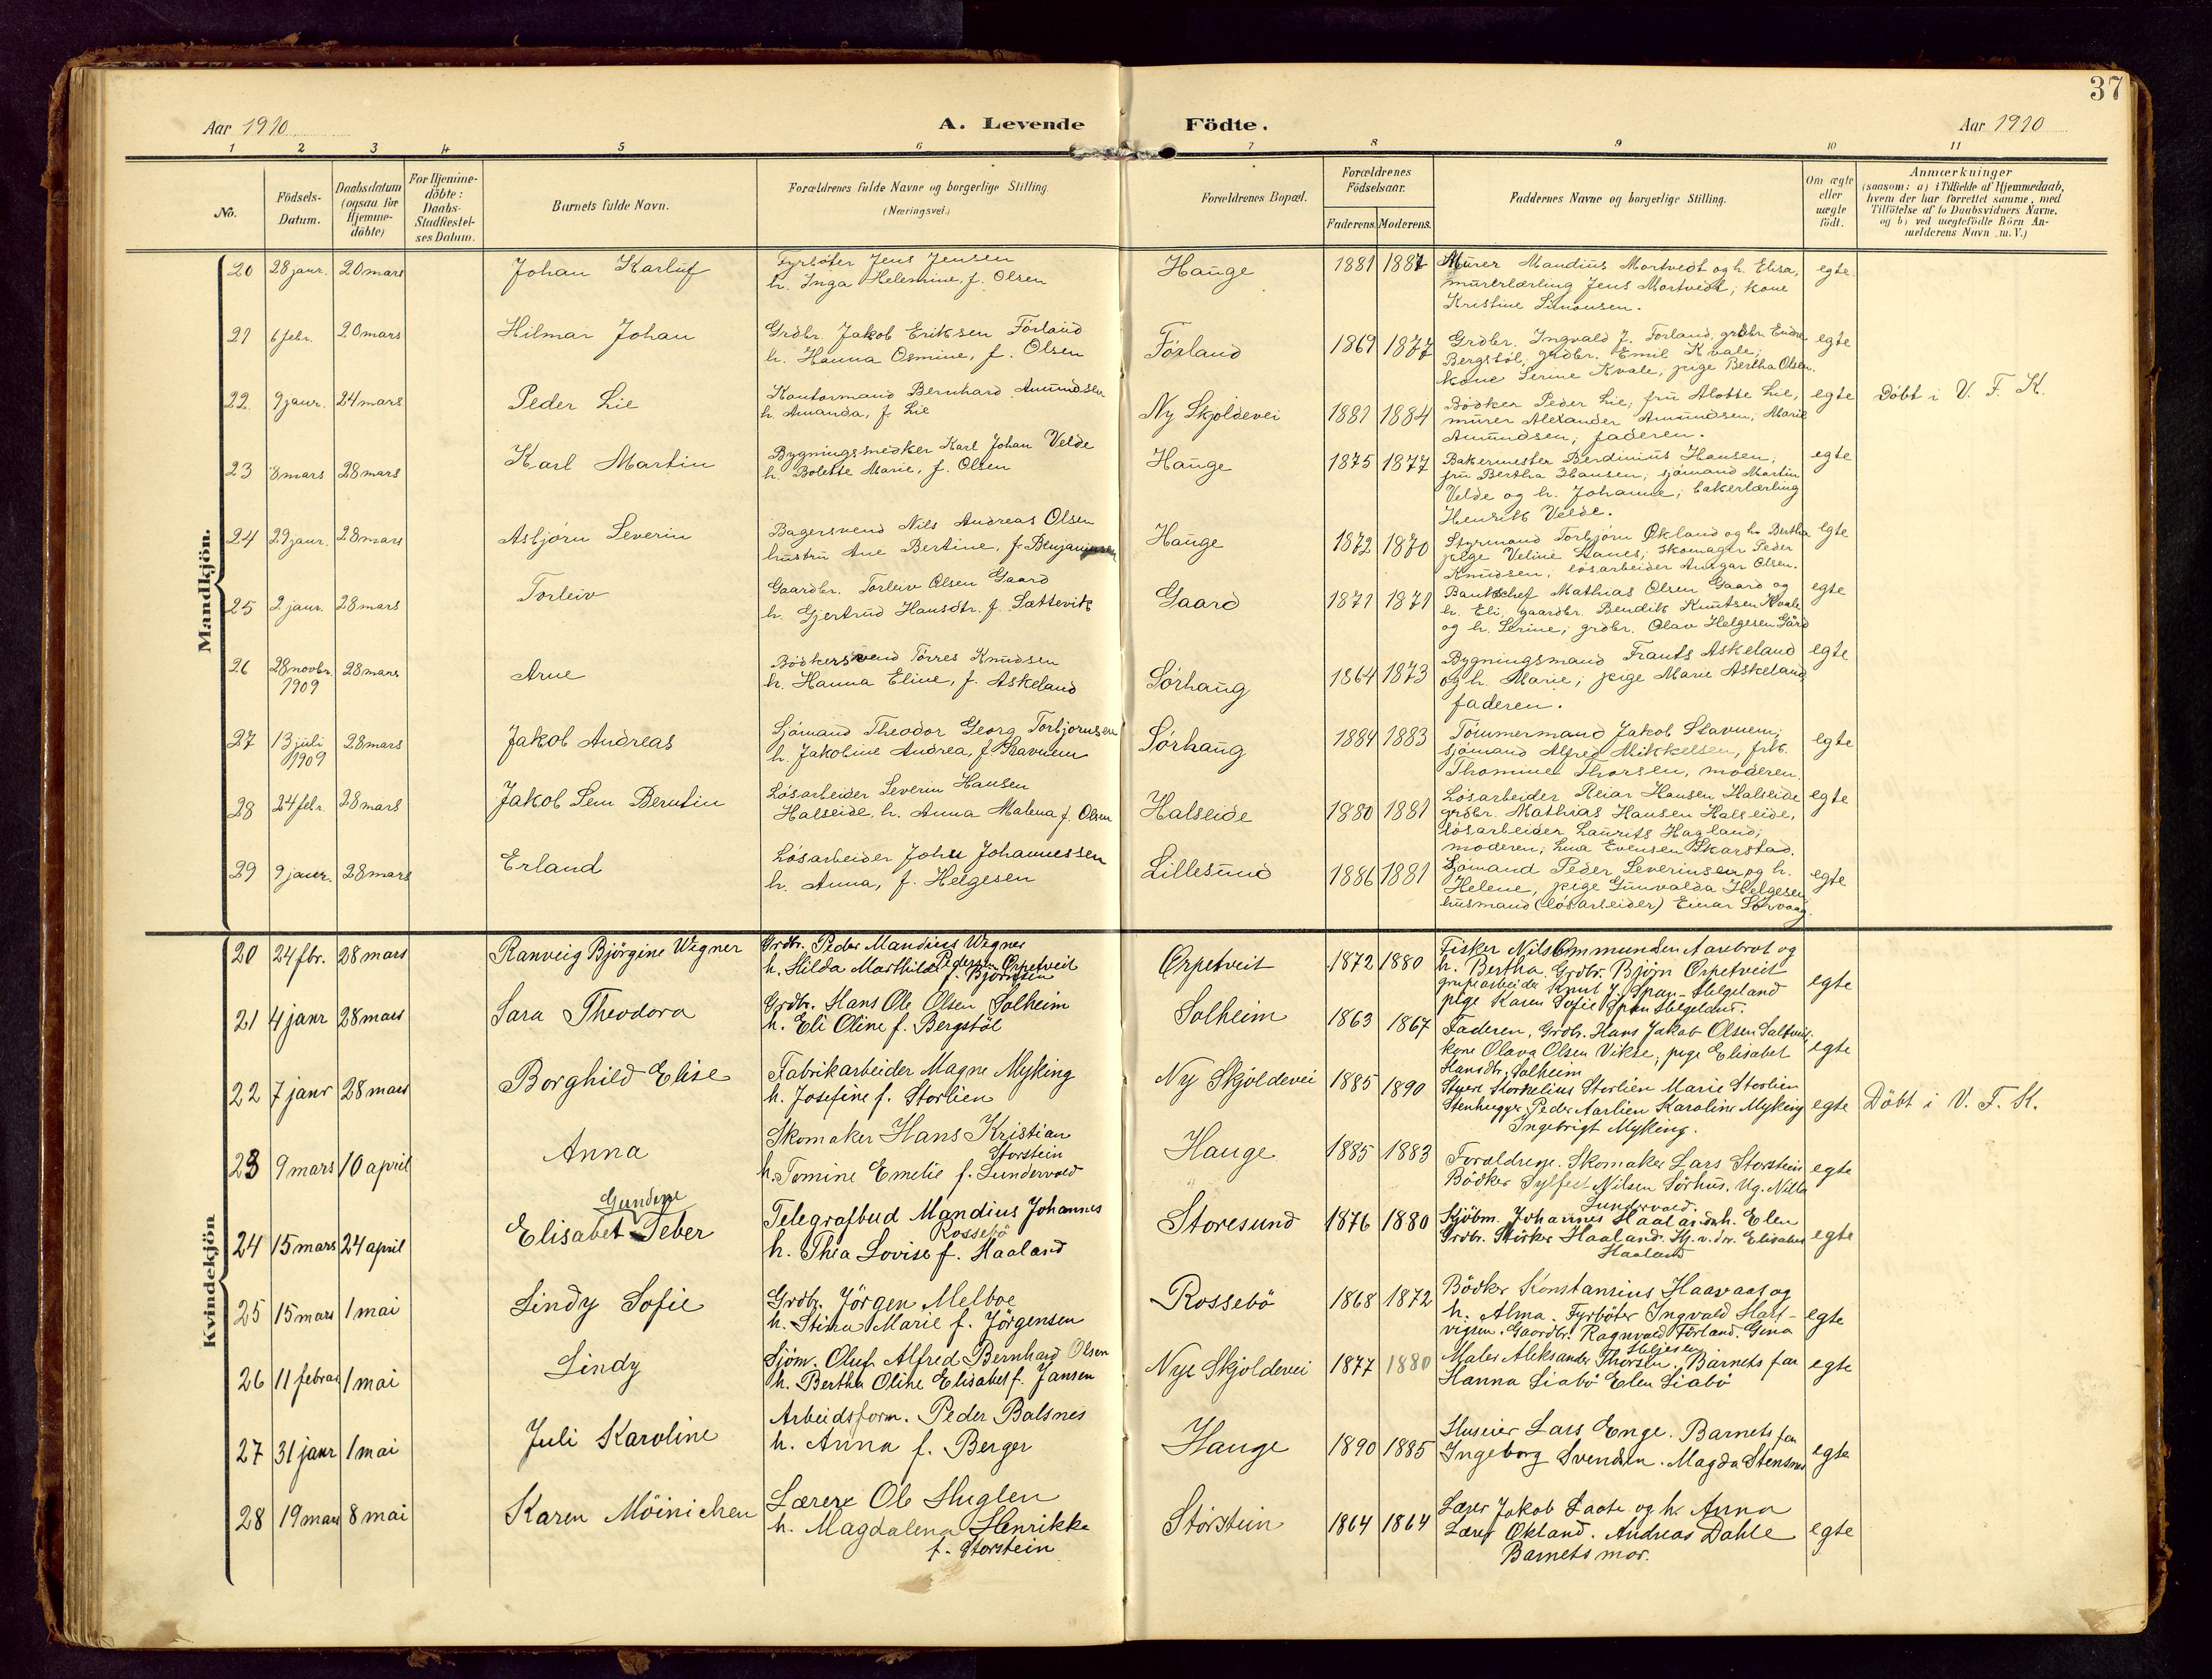 37
Aar 1910
A. Levende Födte.
Aar 1910
1 2 3 4 5 6 7 8 9 10 11
No.
Födsels-Datum.
Daabsdatum (ogsaa for Hjemme-döbte)
For Hjemme-döbte: Daabs-Stadfæstel-ses Datum.
Barnets fulde Navn.
Forældrenes fulde Navne og borgerlige Stilling.
(Næringsvei.)
Forældrenes Bopæl.
Forældrenes Födselsaar.
Faderens. Moderens.
Faddernes Navne og borgerlige Stilling.
Om ægte eller uægte födt.
Anmærkninger
(saasom: a) i Tilfælde af Hjemmedaab,
hvem der har forrettet samme, med
Tilföielse af to Daabsvidners Navne,
og b) ved uægtefödte Börn An-
melderens Navn m. V.)
Mandkjön.
20 28 janr. 20 mars Johan Karluf
Fyrböter Jens Jensen
h. Inga Helemine, f. Olsen
Hauge 1881 1887
Murer Mandius Mortvedt og h. Elisa,
murerlærling Jens Mortvedt; kone
Kristine Simonsen.
egte.
21 6 febr. 20 mars Hilmar Johan
Grdbr. Jakob Eriksen Förland
h. Hanna Osmine, f. Olsen
Förland 1869 1877
Grdbr. Ingvald J. Förland, grdbr. Endre
Bergstöl, grdbr. Emil Kvale;
kone Serine Kvale, pige Bertha Olsen.
egte
22 9 janr. 24 mars Peder Lie
Kontormand Bernhard Amundsen
h. Amanda, f. Lie
Ny Skjoldevei 1881 1884
Bödker Peder Lie; fru Alotte Lie,
murer Alexander Amundsen; Marie
Amundsen; faderen.
egte Döbt i V. F. K.
23 8 mars 28 mars Karl Martin
Bygningssnedker Karl Johan Velde
h. Bolette Marie, f. Olsen
Hauge 1875 1877
Bakermester Berdinius Hansen;
fru Bertha Hansen; sjömand Martin
Velde og h. Johanne; bakerlærling
Henrik Velde.
egte
24 29 janr. 28 mars Asbjörn Severin
Bagersvend Nils Andreas Olsen
hustru Ane Bertine, f. Benjaminsen
Hauge 1872 1870
Styrmand Torbjörn Økland og h. Bertha
pige Veline Stanes; skomager Peder
Knudsen; lösarbeider Ansgar Olsen.
egte
25 2 janr. 28 mars Torleiv
Gaardbr. Torleiv Olsen Gaard
h. Gjertrud Hansdtr. f. Sættevik
Gaard 1871 1871
Bankchef Mathias Olsen Gaard og
h. Eli; gaardbr. Bendik Knutsen Kvale
og h. Serine; grdbr. Olav Helgesen Gård
egte
26 28 novbr. 1909 28 mars Arne
Bödkersvend Törres Knudsen
h. Hanna Eline, f. Askeland
Sörhaug 1864 1873
Bygningsmand Frants Askeland
og h. Marie; pige Marie Askeland,
faderen.
egte
27 13 juli 1909 28 mars Jakob Andreas
Sjömand Theodor Georg Torbjörnsen
h. Jakobine Andrea, f. Stavnem
Sörhaug 1884 1883
Tömmermand Jakob Stavnem;
sjömand Alfred Mikkelsen; frk.
Thomine Thorsen, moderen.
egte
28 24 febr. 28 mars Jakob Sem Berntin
Lösarbeider Severin Hansen
Halseide, h. Anna Malena f. Olsen
Halseide 1880 1881
Lösarbeider Reiar Hansen Halseide
grdbr. Mathias Hansen Halseide,
lösarbeider Laurits Hagland;
moderen; Lina Evensen Skarstad.
egte
29 9 janr. 28 mars Erland
Lösarbeider John Johannessen
h. Anna, f. Helgesen
Lillesund 1886 1881
Sjömand Peder Severinsen og h.
Helene, pige Gunvalda Helgesen,
husmand (lösarbeider) Einar Sörvaag.
egte
Kvindekjön
20 24 fbr. 28 mars Ranveig Björgine Wegner
Grdbr. Peder Mandius Wegner
Pedersen Orpetveit
h. Hilda Marthilde f. Björnsen
Orpetveit 1872 1880
Fisker Nils Ommundsen Aarebrot og
h. Bertha. Grdbr. Björn Orpetveit
grubearbeider Knut J. Span-Helgeland
pige Karen Sofie Span Helgeland.
egte
21 4 janr 28 mars Sara Theodora
Grdbr. Hans Ole Olsen Solheim
h. Eli Oline f. Bergstöl
Solheim 1863 1867
Faderen, Grdbr. Hans Jakob Olsen Saltveit
kone Olava Olsen Vikse, pige Elisabet
Hansdtr. Solheim
egte
22 7 janr 28 mars Borghild Elise
Fabrikarbeider Magne Myking
h. Josefine f. Storlien
Ny Skjoldevei 1885 1890
Storkelius Storlien Marie Storlien
Stenhugger Peder Aarlien Karoline Myking
Ingebrigt Myking.
egte Döbt i V. F. K.
23 9 mars 10 april Anna
Skomaker Hans Kristian
Storstein
h. Tomine Emelie f. Sundervold
Hauge 1885 1883
Forældrene. Skomaker Lars Storstein
Bödker Sylfest Nilsen Sörhus. Ug. Nilla
Sundervold.
egte
24 15 mars 24 april
Gundene
Elisabet Seber
Telegrafbud Mandius Johannes
Rossebö
h. Thea Lovise f. Haaland
Storesund 1876 1880
Kjöbm. Johannes Haaland h. Elen
Grdbr. Störker Haaland. Elisabet
Haaland
egte
25 15 mars 1 mai Lindy Sofie
Grdbr. Jörgen Melboe
h. Stina Marie f. Jörgensen
Rossebö 1868 1872
Bödker Konstansius Haavaas og
h. Alma. Fyrböter Ingvald Hart-
vigsen. Gaardbr. Ragnvald Förland. Gina
Helgesen
egte
26 11 februar 1 mai Lindy
Sjöm. Oluf Alfred Bernhard Olsen
h. Bertha Oline Elisabet f. Jansen
Nye Skjoldevei 1877 1880
Maler Aleksander Thorsen. Barnets far
Hanna Liabö Elen Liabö
egte
27 31 janr 1 mai Juli Karoline
Arbeidsform. Peder Balsnes
h. Anna f. Berger
Hauge 1890 1885
Huseier Lars Enge. Barnets far
Ingeborg Svendsen. Magda Stensnes
egte
28 19 mars 8 mai Karen Möinichen
Lærer Ole Huglen
h. Magdalena Henrikke
f. Storstein
Storstein 1864 1864
Lærer Jakob Laate og h. Anna
Lærer Økland. Andreas Dahle
Barnets mor.
egte